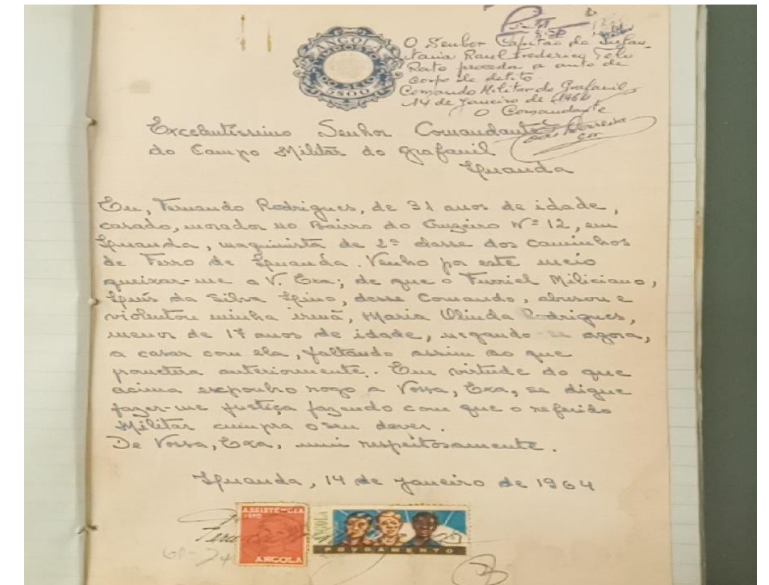 ANGOLA
IMPOSTO
DO SELO
5$00
O Senhor Capitão de Infan-
taria Raul Frederico
Rato proceda a auto de
corpo de delito
Comando Militar do Grafanil
14 de Janeiro de 1964
O Comandante
Excelentíssimo Senhor Comandante
do Campo Militar do Grafanil
Luanda
Eu, Fernando Rodrigues, de 31 anos de idade,
casado, morador no Bairro do Cruzeiro Nº 12, em
Luanda, maquinista de 2ª classe dos Caminhos
de Ferro de Luanda. Venho por este meio
queixar-me a V. Exa; de que o Furriel Miliciano,
Luís da Silva Lino, desse Comando, abusou e
violentou minha irmã, Maria Olinda Rodrigues,
menor de 17 anos de idade, negando-se agora,
a casar com ela, faltando assim ao que
prometera anteriormente. Em virtude do que
acima exponho rogo a Vossa, Exa, se digne
fazer-me justiça fazendo com que o referido
Militar cumpra o seu dever.
De Vossa, Exa, mui respeitosamente.
Luanda, 14 de Janeiro de 1964
ANGOLA
ANGOLA
POVOAMENTO